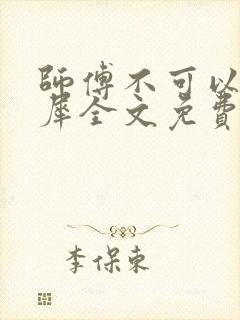 師傅不可以
犀全文免費
李保東